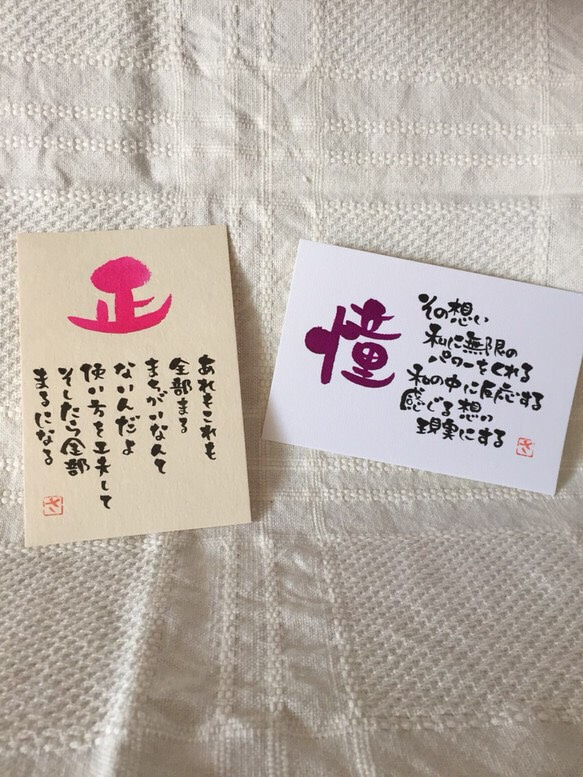 正
あれもこれも
全部まる
まちがいなんて
ないんだよ
使い方を工夫して
そしたら全部
まるになる
憧
その想い
私に無限の
パワーをくれる
私の中に反応する
感じる想い
現実にする